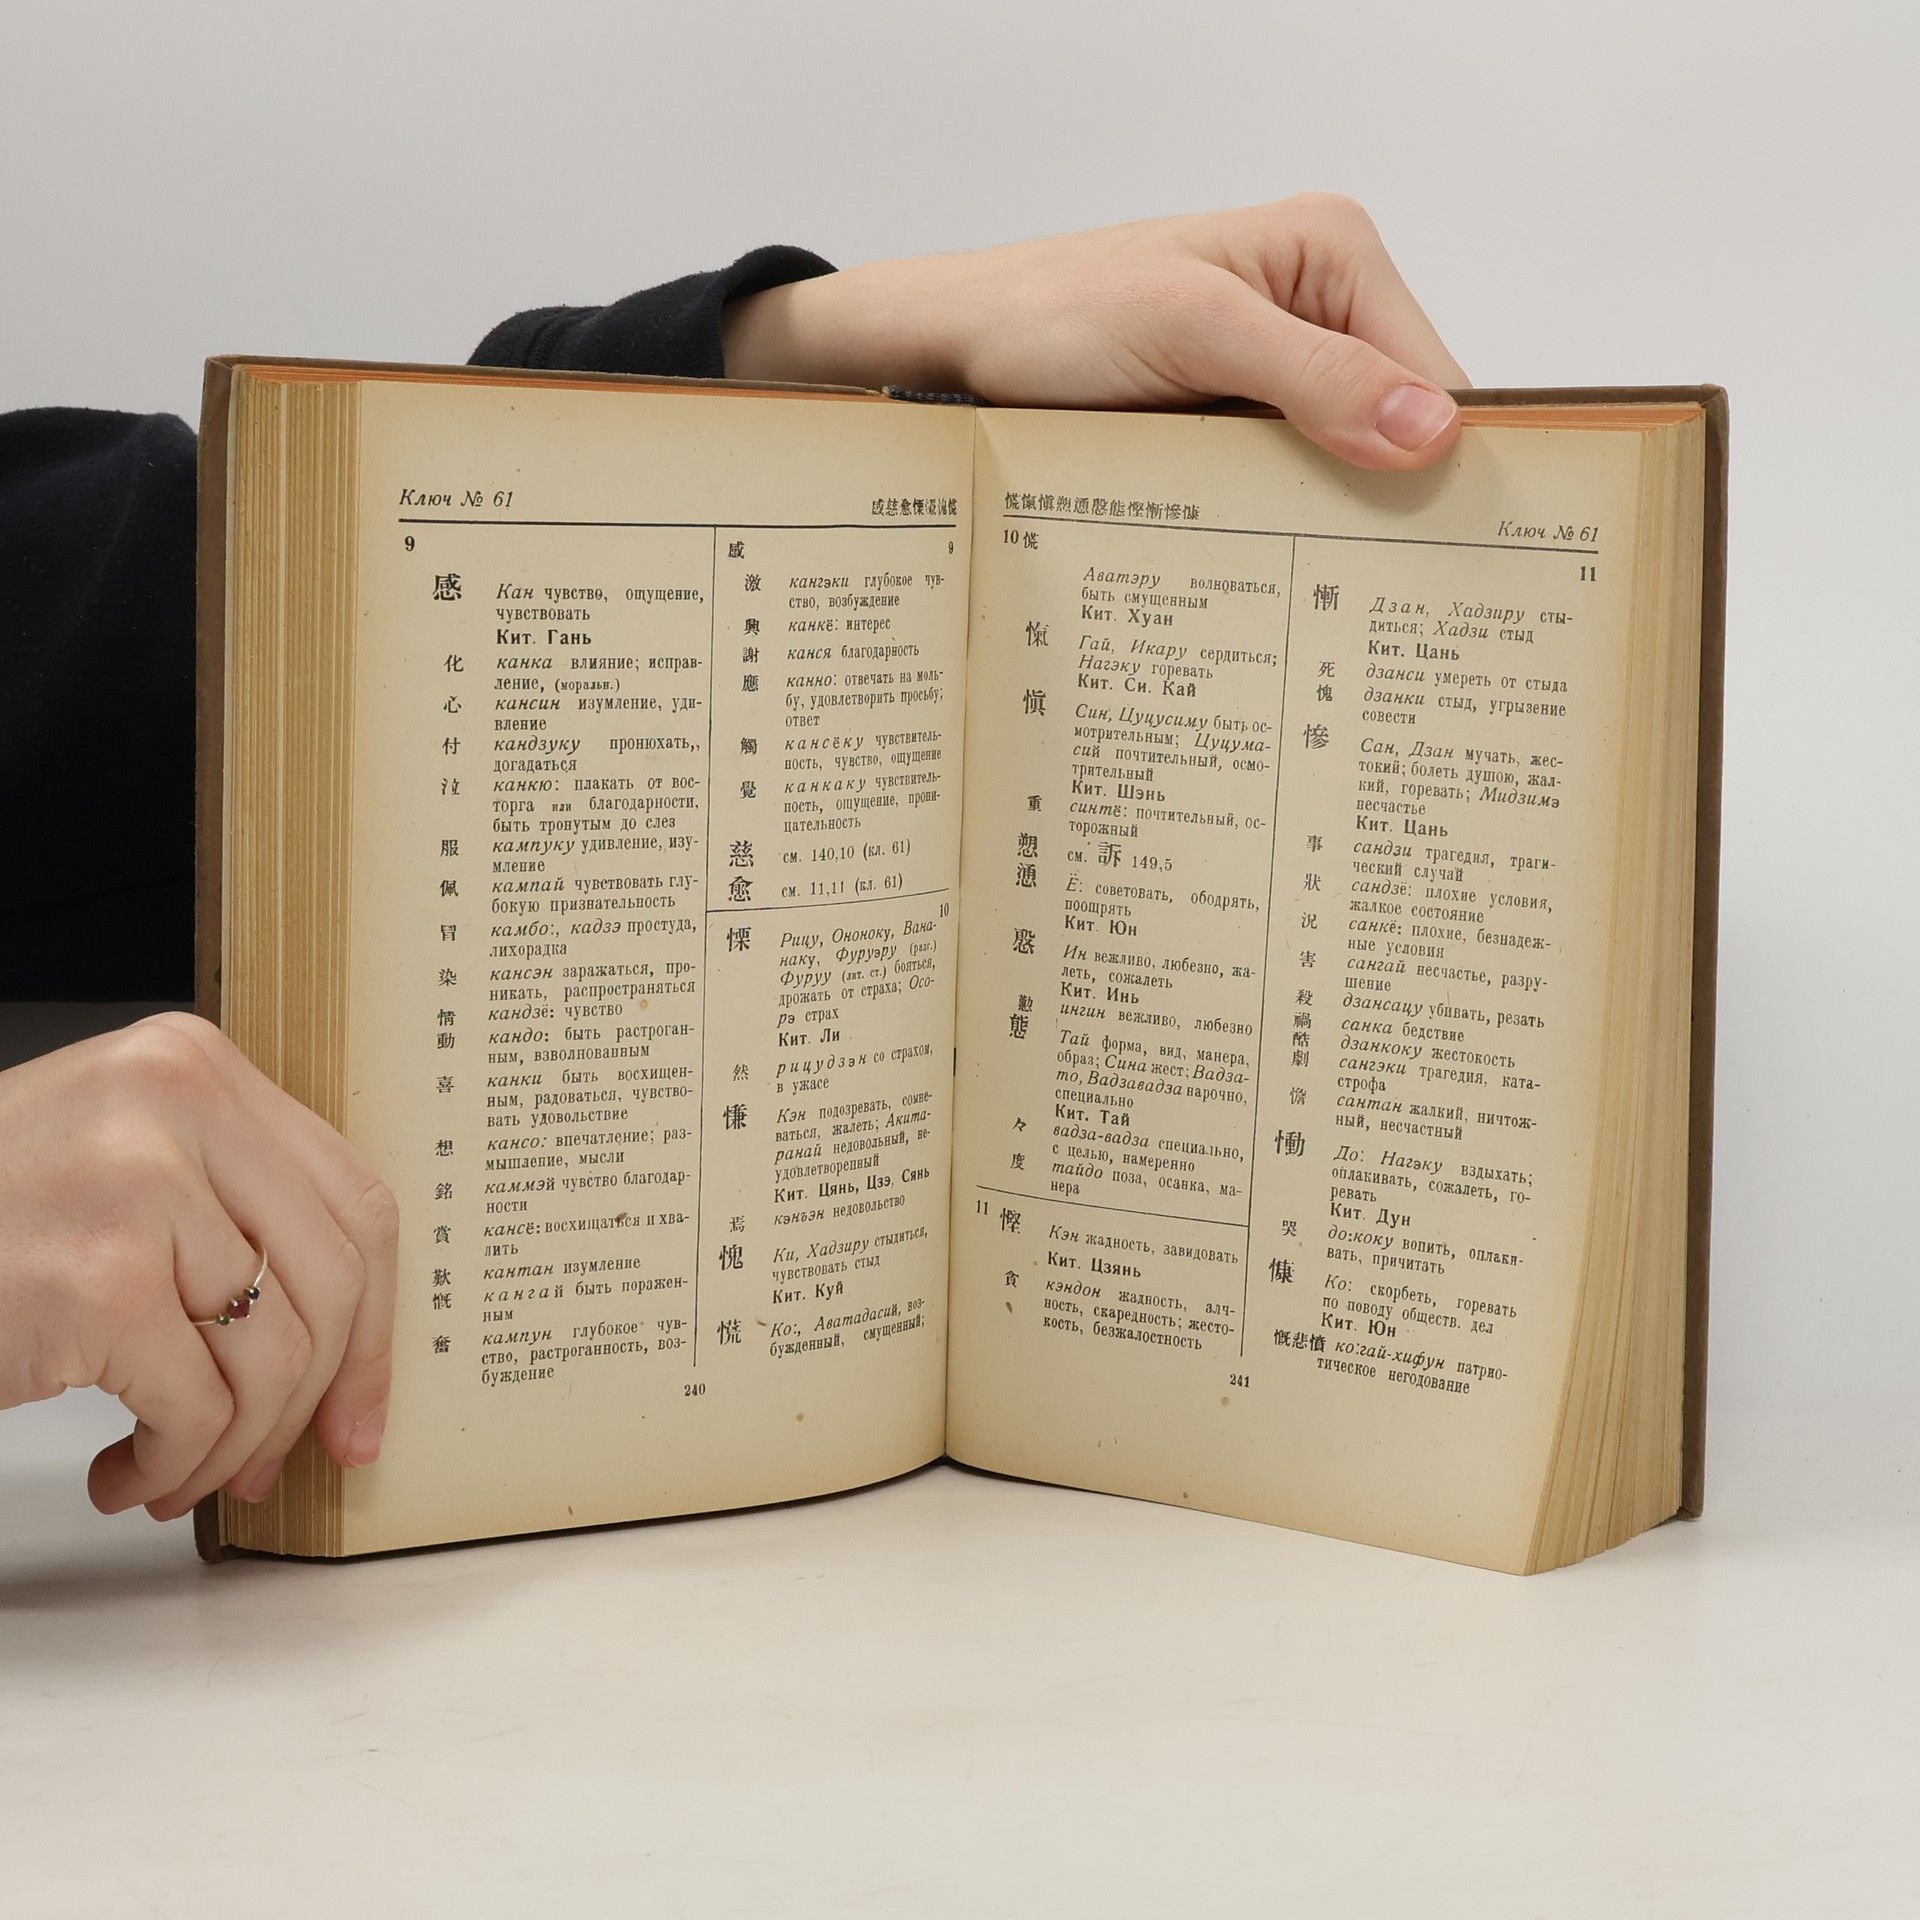 Ключ № 61
感慈愈慄慊愧慌
9
感 Кан чувство, ощущение,
чувствовать
Кит. Гань
化 канка влияние; исправ-
ление, (моральн.)
心 кансин изумление, уди-
вление
付 кандзуку пронюхать,,
догадаться
泣 канкю: плакать от вос-
торга или благодарности,
быть тронутым до слез
服 кампуку удивление, изу-
мление
佩 кампай чувствовать глу-
бокую признательность
冒 камбо:, кадзэ простуда,
лихорадка
染 кансэн заражаться, про-
никать, распространяться
情 кандзё: чувство
動 кандо: быть растроган-
ным, взволнованным
喜 канки быть восхищен-
ным, радоваться, чувство-
вать удовольствие
想 кансо: впечатление; раз-
мышление, мысли
銘 каммэй чувство благодар-
ности
賞 кансё: восхищаться и хва-
лить
歎 кантан изумление
慨 кангай быть поражен-
ным
奮 кампун глубокое чув-
ство, растроганность, воз-
буждение
感 9
激 кангэки глубокое чув-
ство, возбуждение
興 канкё: интерес
謝 канся благодарность
應 канно: отвечать на моль-
бу, удовлетворить просьбу;
ответ
觸 кансёку чувствитель-
ность, чувство, ощущение
覺 канкаку чувствитель-
ность, ощущение, прони-
цательность
慈 см. 140,10 (кл. 61)
愈 см. 11,11 (кл. 61)
10
慄 Рицу, Ононоку, Вана-
наку, Фуруэру (разг.)
Фуруу (лит. ст.) бояться,
дрожать от страха; Осо-
рэ страх
Кит. Ли
然 рицудзэн со страхом,
в ужасе
慊 Кэн подозревать, сомне-
ваться, жалеть; Акита-
ранай недовольный, не-
удовлетворенный
Кит. Цянь, Цзэ, Сянь
焉 кэнъэн недовольство
愧 Ки, Хадзиру стыдиться,
чувствовать стыд
Кит. Куй
慌 Ко:, Аватадасий, воз-
бужденный, смущенный;
240
慌愾愼愬慂慇態慳慚慘慷
Ключ № 61
10 慌
Аватэру волноваться,
быть смущенным
Кит. Хуан
愾 Гай, Икару сердиться;
Нагэку горевать
Кит. Си. Кай
愼 Син, Цуцусиму быть ос-
мотрительным; Цуцума-
сий почтительный, осмо-
трительный
Кит. Шэнь
重 синтё: почтительный, ос-
торожный
愬 см. 訴 149,5
慂 Ё: советовать, ободрять,
поощрять
Кит. Юн
慇 Ин вежливо, любезно, жа-
леть, сожалеть
Кит. Инь
懃 ингин вежливо, любезно
態 Тай форма, вид, манера,
образ; Сина жест; Вадза-
то, Вадзавадза нарочно,
специально
Кит. Тай
々 вадза-вадза специально,
с целью, намеренно
度 тайдо поза, осанка, ма-
нера
11
慳 Кэн жадность, завидовать
Кит. Цзянь
貪 кэндон жадность, алч-
ность, скаредность; жесто-
кость, безжалостность
11
慚 Дзан, Хадзиру сты-
диться; Хадзи стыд
Кит. Цань
死 дзанси умереть от стыда
愧 дзанки стыд, угрызение
совести
慘 Сан, Дзан мучать, жес-
токий; болеть душою, жал-
кий, горевать; Мидзимэ
несчастье
Кит. Цань
事 сандзи трагедия, траги-
ческий случай
狀 сандзё: плохие условия,
жалкое состояние
況 санкё: плохие, безнадеж-
ные условия
害 сангай несчастье, разру-
шение
殺 дзансацу убивать, резать
禍 санка бедствие
酷 дзанкоку жестокость
劇 сангэки трагедия, ката-
строфа
憺 сантан жалкий, ничтож-
ный, несчастный
慟 До: Нагэку вздыхать;
оплакивать, сожалеть, го-
ревать
Кит. Дун
哭 до:коку вопить, оплаки-
вать, причитать
慷 Ко: скорбеть, горевать
по поводу обществ. дел
Кит. Юн
慨悲憤 ко:гай-хифун патрио-
тическое негодование
241